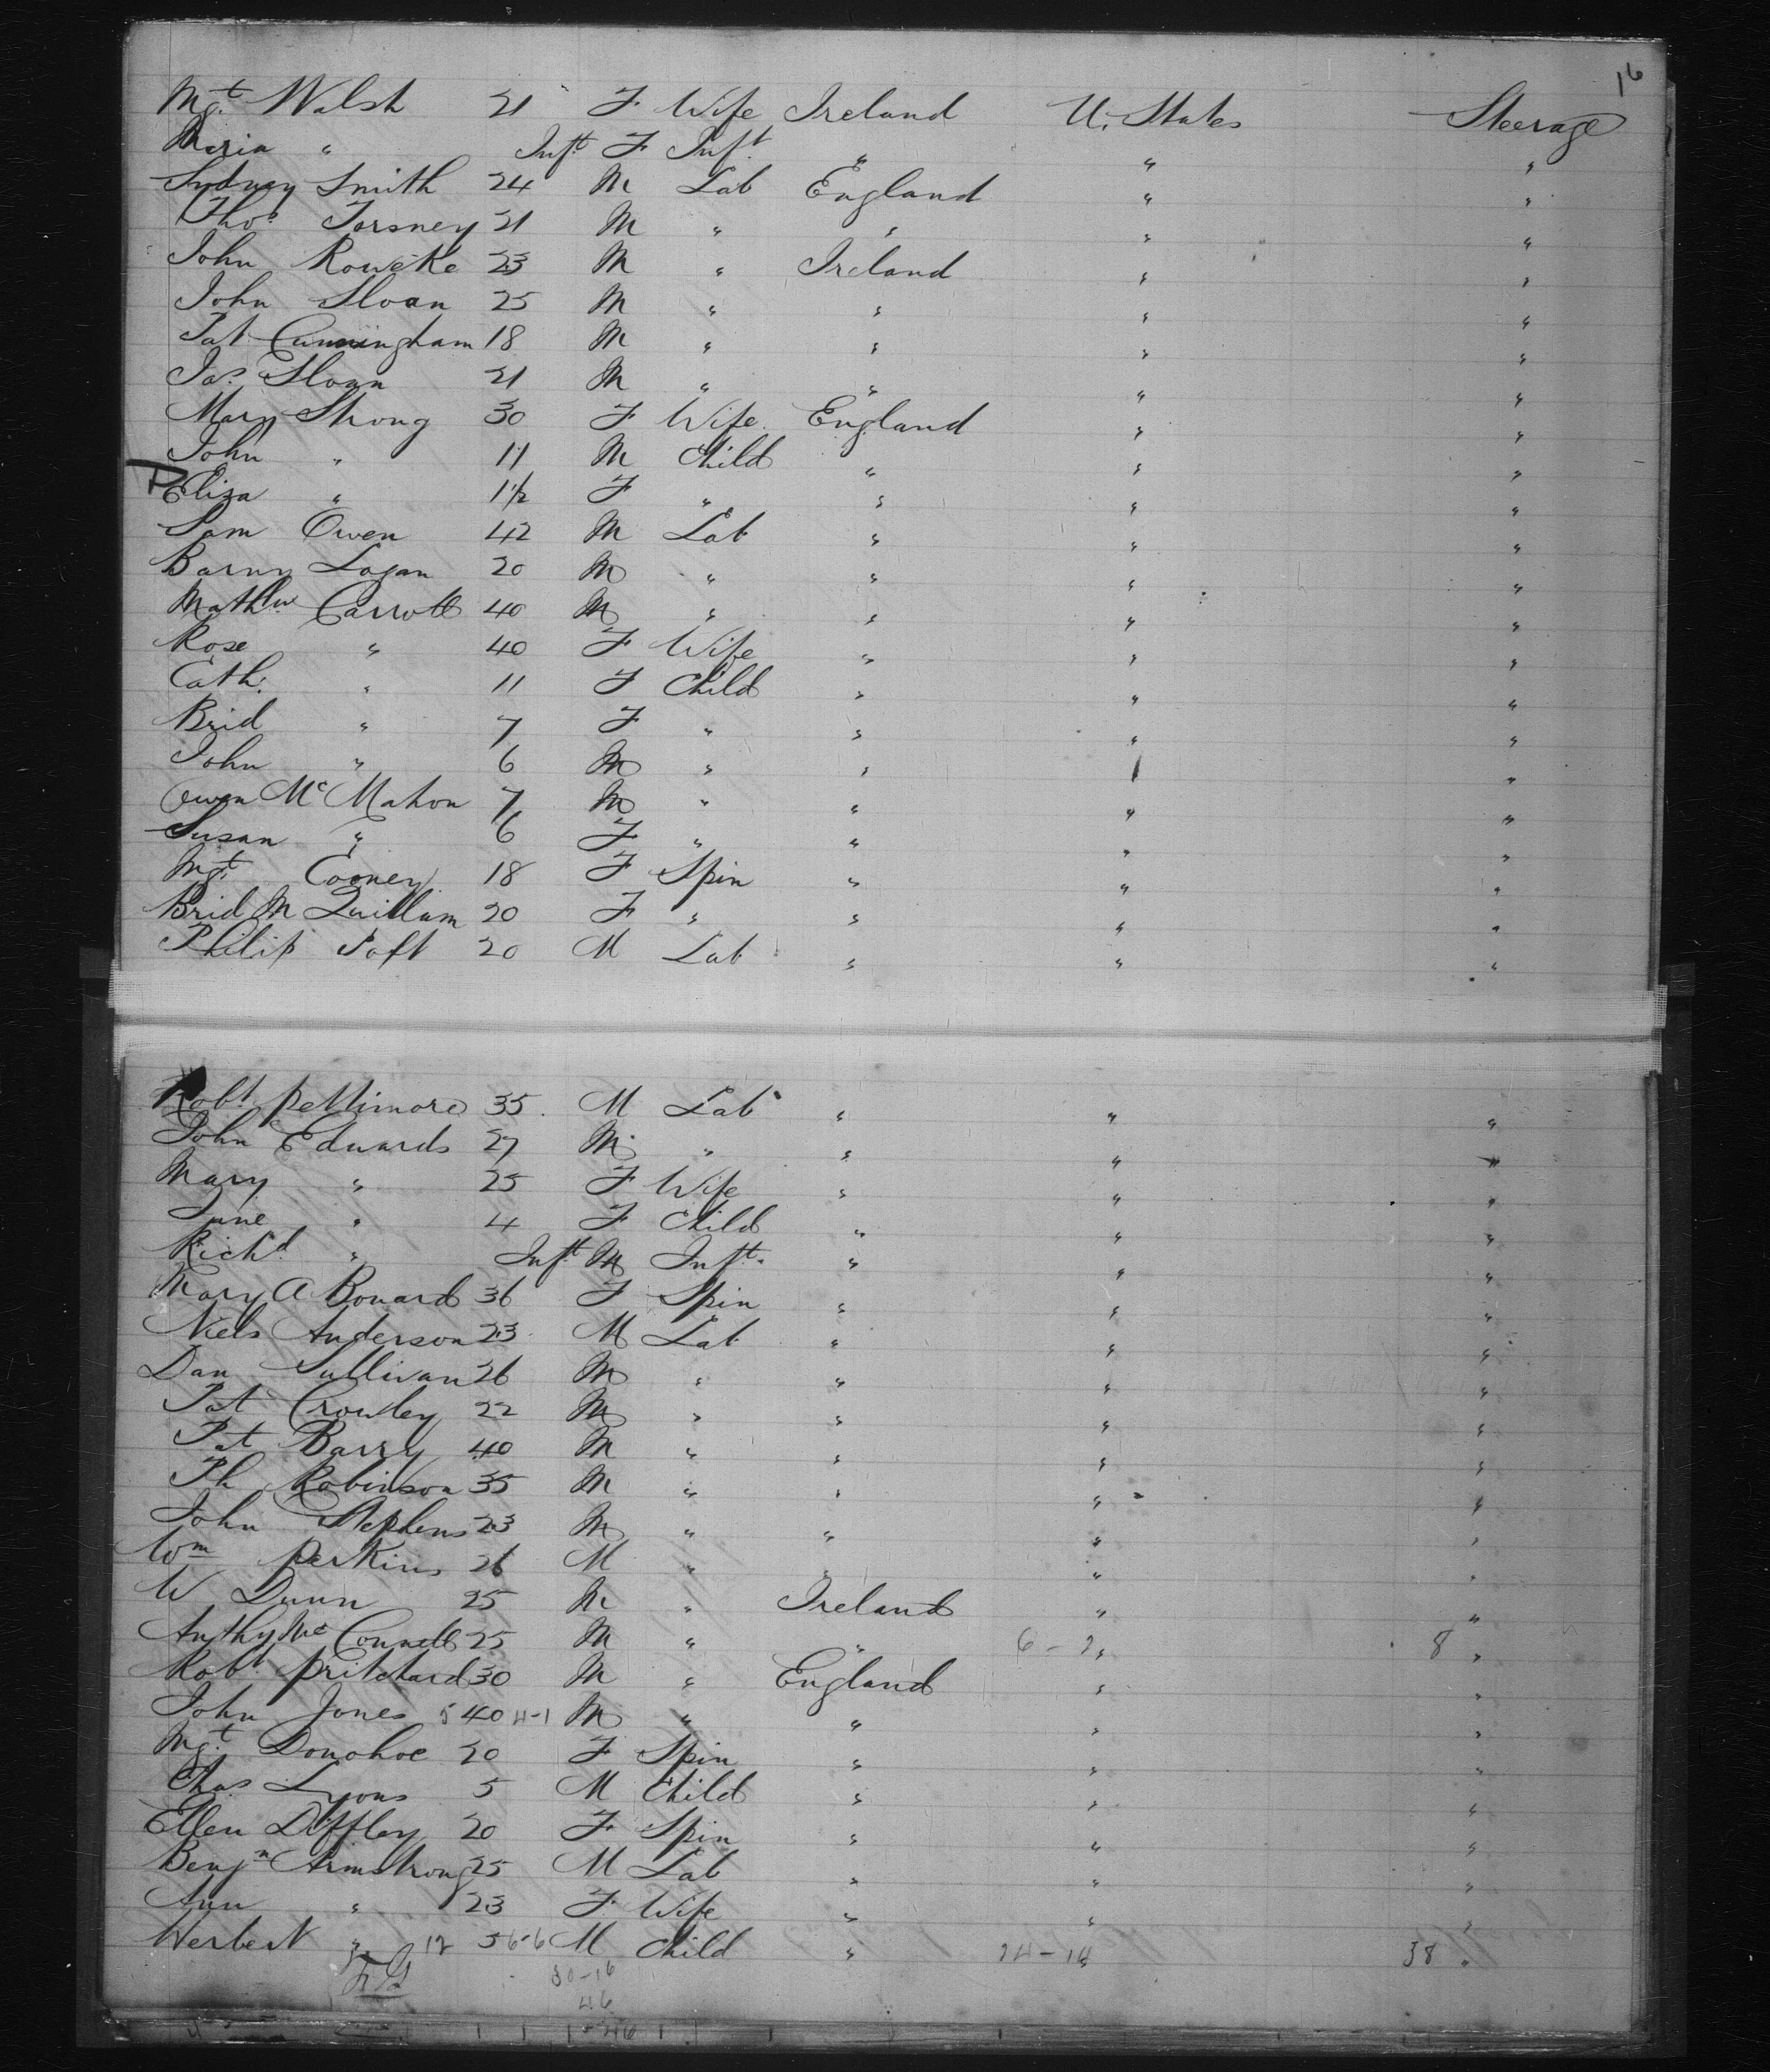 16
Mgt Walsh 21 F Wife Ireland U. States Steerage
Maria " Inft F Inft " " "
Sydney Smith 24 M Lab England " "
Thos Torsney 21 M " " " "
John Roweke 23 M " Ireland " "
John Sloan 25 M " " " "
Pat Cunningham 18 M " " " "
Jas Sloan 21 M " " " "
Mary Strong 30 F Wife England " "
John " 11 M Child " " "
Eliza " 1½ F " " " "
Sam Owen 42 M Lab " " "
Barny Logan 20 M " " " "
Mathw Carroll 40 M " " " "
Rose " 40 F Wife " " "
Cath. " 11 F Child " " "
Brid " 7 F " " " "
John " 6 M " " " "
Owen McMahon 7 M " " " "
Susan " 6 F " " " "
Mgt Cooney 18 F Spin " " "
Brid M Quillam 20 F " " " "
Philip Toft 20 M Lab " " "
Robt Pettimore 35 M Lab " " "
John Edwards 27 M " " " "
Mary " 25 F Wife " " "
June " 4 F Child " " "
Richd " Inft M Inft " " "
Mary A Bonard 36 F Spin " " "
Niels Anderson 23 M Lab " " "
Dan Sullivan 26 M " " " "
Pat Crowley 22 M " " " "
Pat Barry 40 M " " " "
Th Robinson 35 M " " " "
John Stephens 23 M " " " "
Wm Perkins 26 M " " " "
W Dunn 25 M " Ireland " "
Anthy McConnell 25 M " " 6 - 2 " 8 "
Robt Pritchard 30 M " England " "
John Jones 5 40 4-1 M " " " "
Mgt Donohoe 20 F Spin " " "
Chas Lyons 5 M Child " " "
Ellen Diffley 20 F Spin " " "
Benjn Armstrong 25 M Lab " " "
Ann " 23 F Wife " " "
Herbert " 12 5 6-6 M Child " 24-14 " 38 "
30-16
46